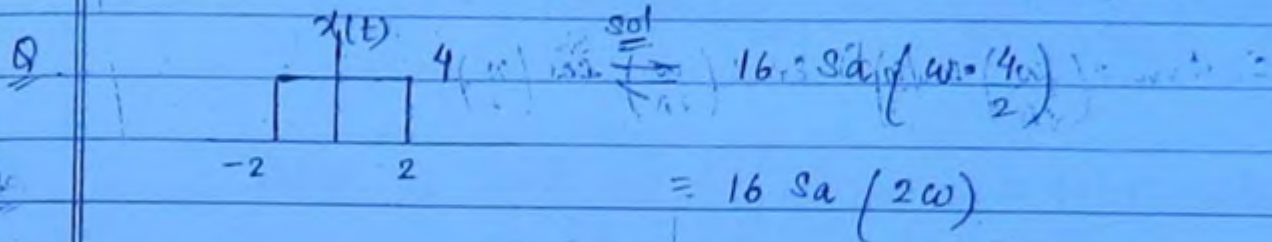 Q x(t) 4 sol ⇌ 16 Sa ( ω · 4/2 )
-2 2
= 16 Sa (2ω)